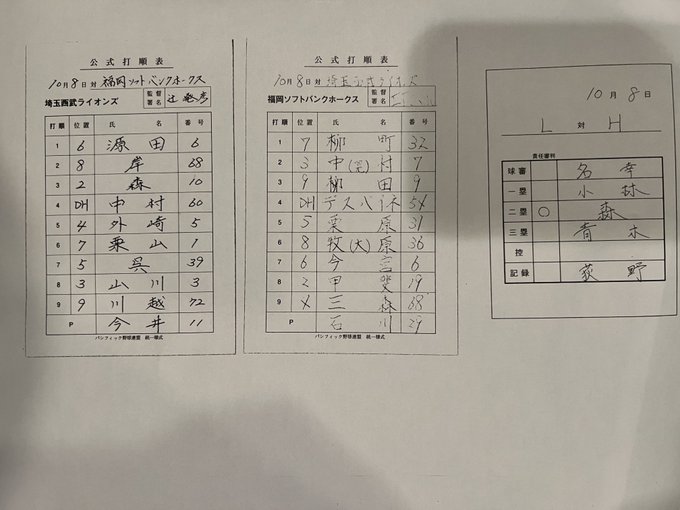 公式打順表
10月8日対 福岡ソフトバンクホークス
埼玉西武ライオンズ 監督署名 辻 発彦
打順 位置 氏 名 番号
1 6 源田 6
2 8 岸 68
3 2 森 10
4 DH 中村 60
5 4 外崎 5
6 7 栗山 1
7 5 呉 39
8 3 山川 3
9 9 川越 72
P 今井 11
パシフィック野球連盟 統一様式
公式打順表
10月8日対 埼玉西武ライオンズ
福岡ソフトバンクホークス 監督署名
打順 位置 氏 名 番号
1 7 柳町 32
2 3 中(晃)村 7
3 9 柳田 9
4 DH デスパイネ 54
5 5 栗原 31
6 8 牧(大)原 36
7 6 今宮 6
8 2 甲斐 19
9 4 三森 68
P 石川 29
パシフィック野球連盟 統一様式
10月8日
L 対 H
責任審判
球審 名幸
一塁 小林
二塁 ○ 森
三塁 青木
控
記録 荻野